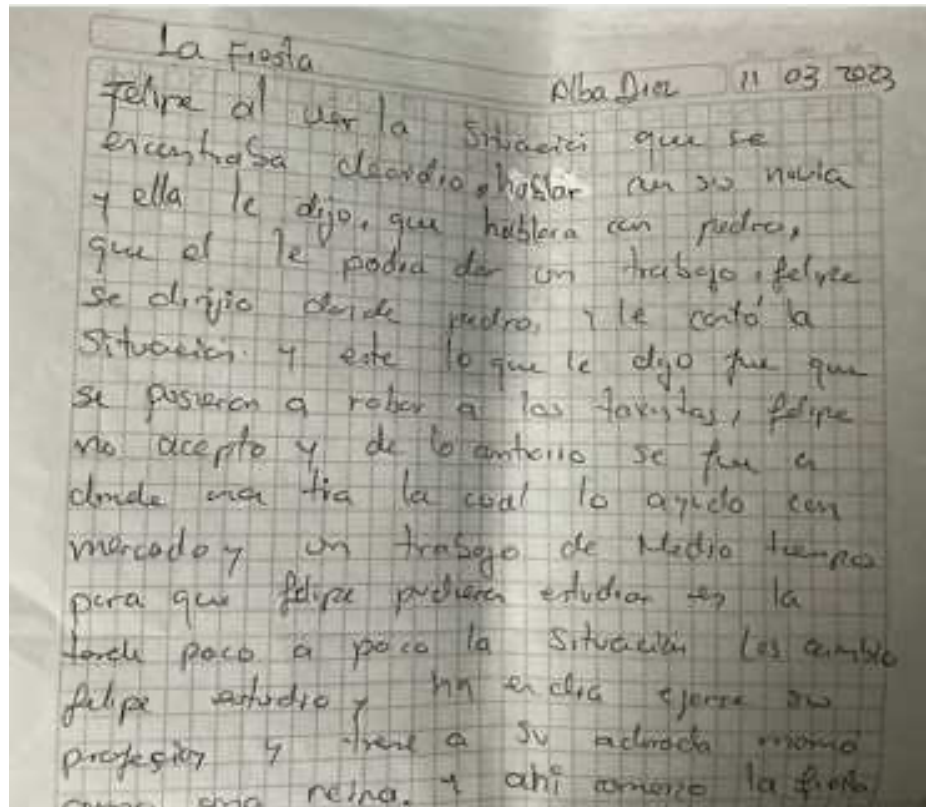 La Fiesta
Alba Diez 11 03 2023
Felipe al ver la situacici que se
encontraba decidio, hablar con su novia
y ella le dijo, que hablara con pedro,
que el le podia dar un trabajo, felipe
se dirijio donde pedro, y le contó la
situación y este lo que le dijo fue que
se pusieron a robar a los taxistas, felipe
no acepto y de lo contrario se fue a
donde una tia la cual lo ayudo con
mercado y un trabajo de Medio tiempo
para que felipe pudiera estudiar en la
tarde poco a poco la situación les cambio
felipe estudio y hoy en dia ejerce su
profesion y tiene a su adorada mamá
como una reina. Y ahi comenzo la fiesta